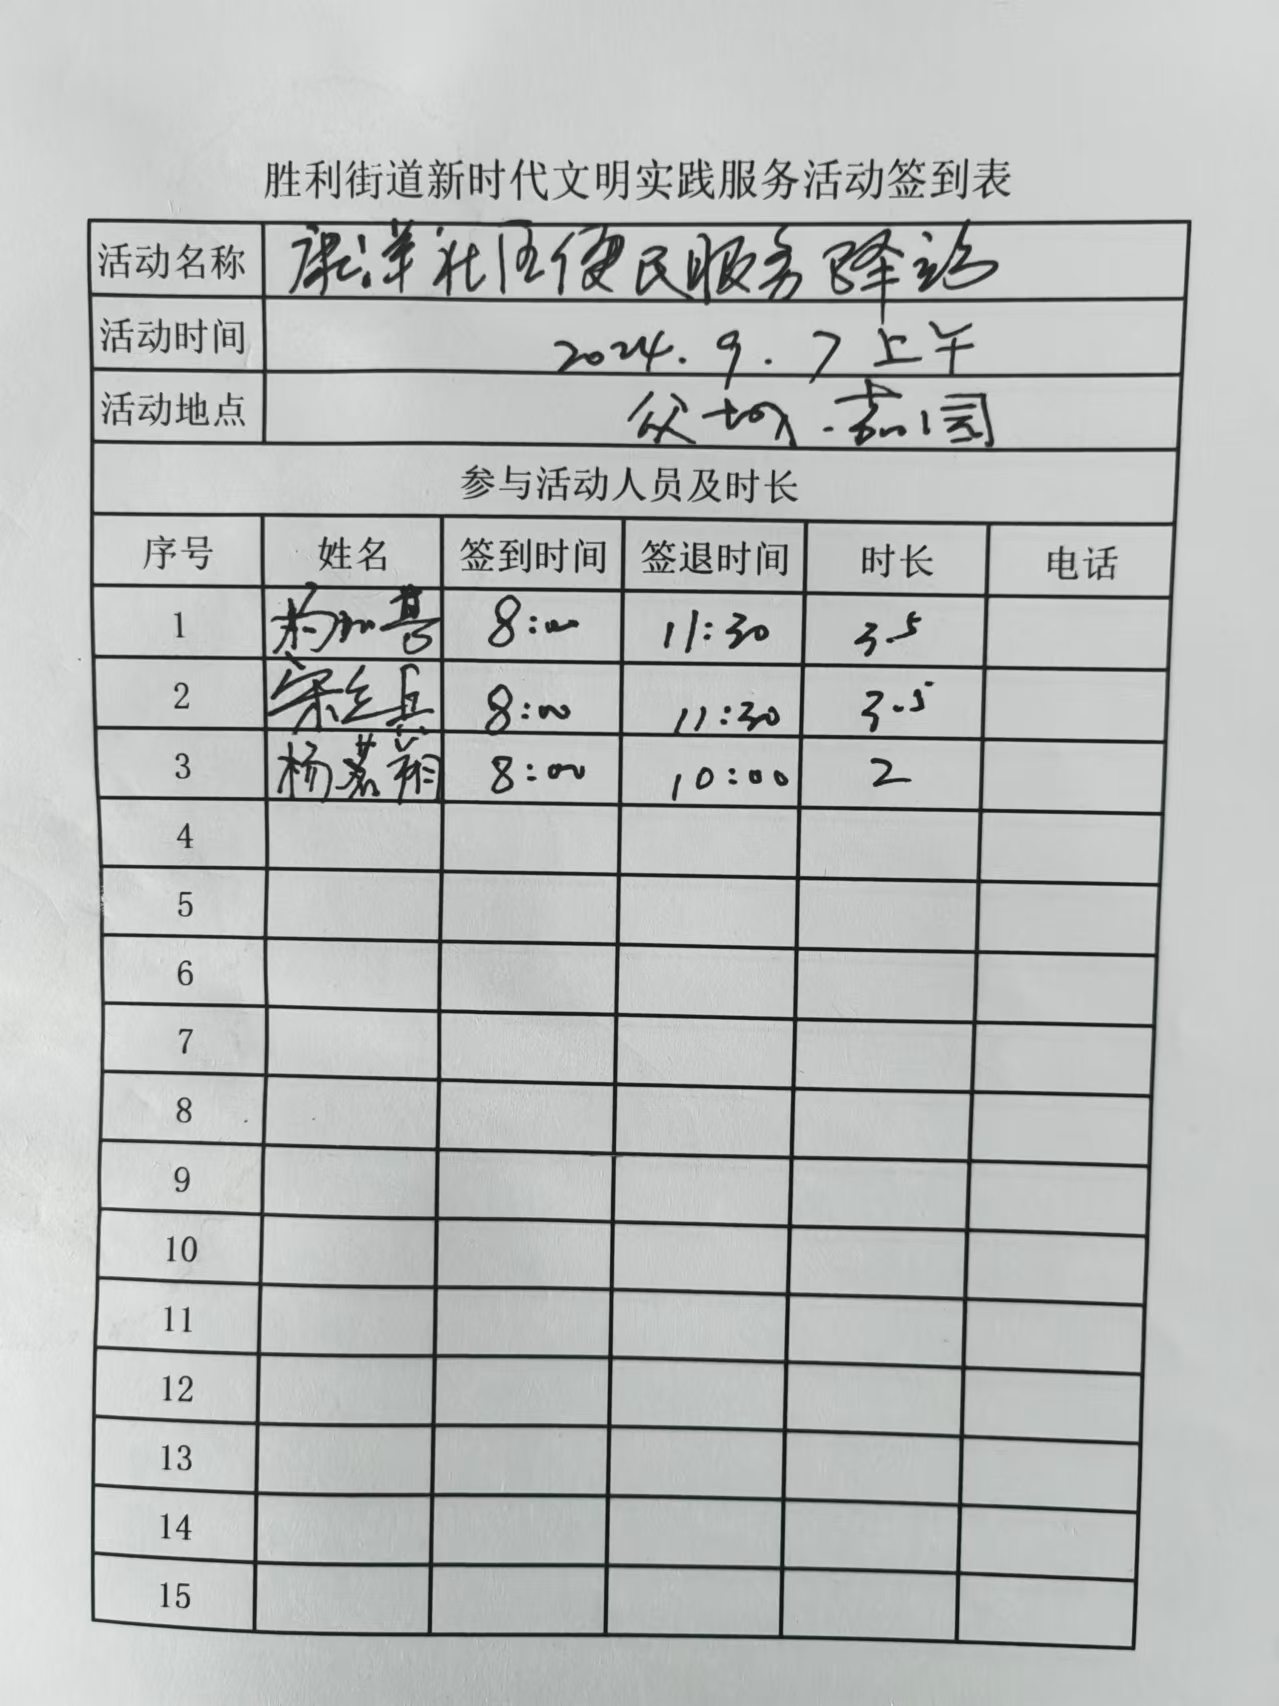 胜利街道新时代文明实践服务活动签到表
活动名称 康洋社区便民服务驿站
活动时间 2024.9.7上午
活动地点 嘉园
参与活动人员及时长
序号 姓名 签到时间 签退时间 时长 电话
1 8:00 11:30 3.5
2 宋 兵 8:00 11:30 3.5
3 杨茗翔 8:00 10:00 2
4
5
6
7
8
9
10
11
12
13
14
15